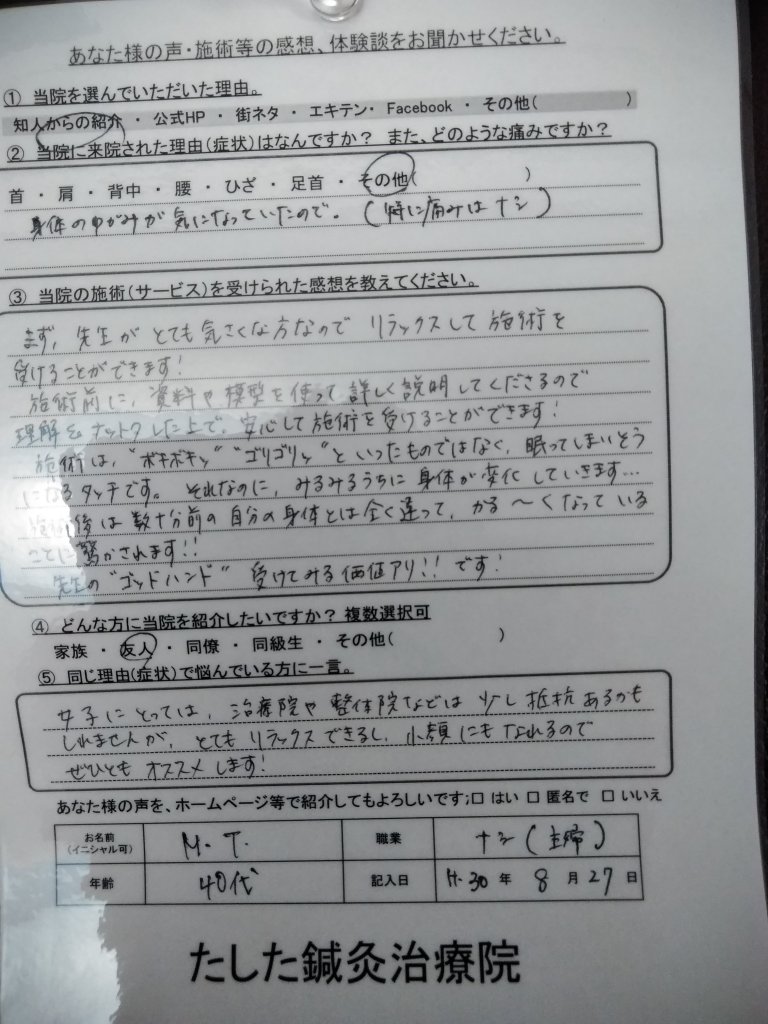 あなた様の声・施術等の感想、体験談をお聞かせください。
① 当院を選んでいただいた理由。
知人からの紹介 ・ 公式HP ・ 街ネタ ・ エキテン・ Facebook ・ その他( )
② 当院に来院された理由(症状)はなんですか? また、どのような痛みですか?
首 ・ 肩 ・ 背中 ・ 腰 ・ ひざ ・ 足首 ・ その他( )
身体のゆがみが気になっていたので。(特に痛みはナシ)
③ 当院の施術(サービス)を受けられた感想を教えてください。
まず、先生がとても気さくな方なのでリラックスして施術を
受けることができます!
施術前に、資料や模型を使って詳しく説明してくださるので
理解&ナットクした上で、安心して施術を受けることができます!
施術は、"ボキボキッ" "ゴリゴリッ"といったものではなく、眠ってしまいそう
になるタッチです。それなのに、みるみるうちに身体が変化していきます…
施術後は数十分前の自分の身体とは全く違って、かる〜くなっている
ことに驚かされます!!
先生の"ゴッドハンド" 受けてみる価値アリ!!です!
④ どんな方に当院を紹介したいですか? 複数選択可
家族 ・ 友人 ・ 同僚 ・ 同級生 ・ その他( )
⑤ 同じ理由(症状)で悩んでいる方に一言。
女子にとっては、治療院や整体院などは少し抵抗あるかも
しれませんが、とてもリラックスできるし、小顔にもなれるので
ぜひともオススメします!
あなた様の声を、ホームページ等で紹介してもよろしいです;□ はい □ 匿名で □ いいえ
お名前 (イニシャル可) M.T. 職業 ナシ(主婦)
年齢 40代 記入日 H.30 年 8 月 27 日
たした鍼灸治療院